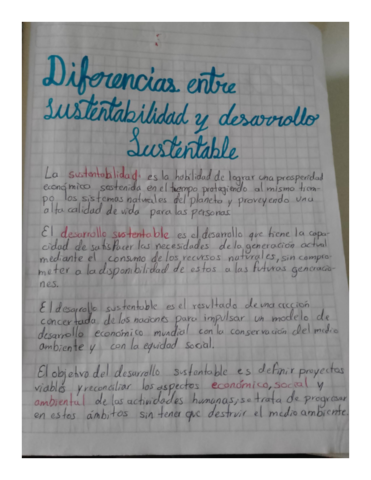 Diferencias entre
Sustentabilidad y desarrollo
Sustentable
La sustentabilidad es la habilidad de lograr una prosperidad
económica sostenida en el tiempo protegiendo al mismo tiem-
po los sistemas naturales del planeta y proveyendo una
alta calidad de vida para las personas
El desarrollo sustentable es el desarrollo que tiene la capa-
cidad de satisfacer las necesidades de la generación actual
mediante el consumo de los recursos naturales, sin compro-
meter a la disponibilidad de estos a las futuras generacio-
nes.
El desarrollo sustentable es el resultado de una acción
concertada de las naciones para impulsar un modelo de
desarrollo económico mundial con la conservación del medio
ambiente y con la equidad social.
El objetivo del desarrollo sustentable es definir proyectos
viables y reconciliar los aspectos económico, social y
ambiental de las actividades humanas, se trata de progresar
en estos ámbitos sin tener que destruir el medio ambiente.